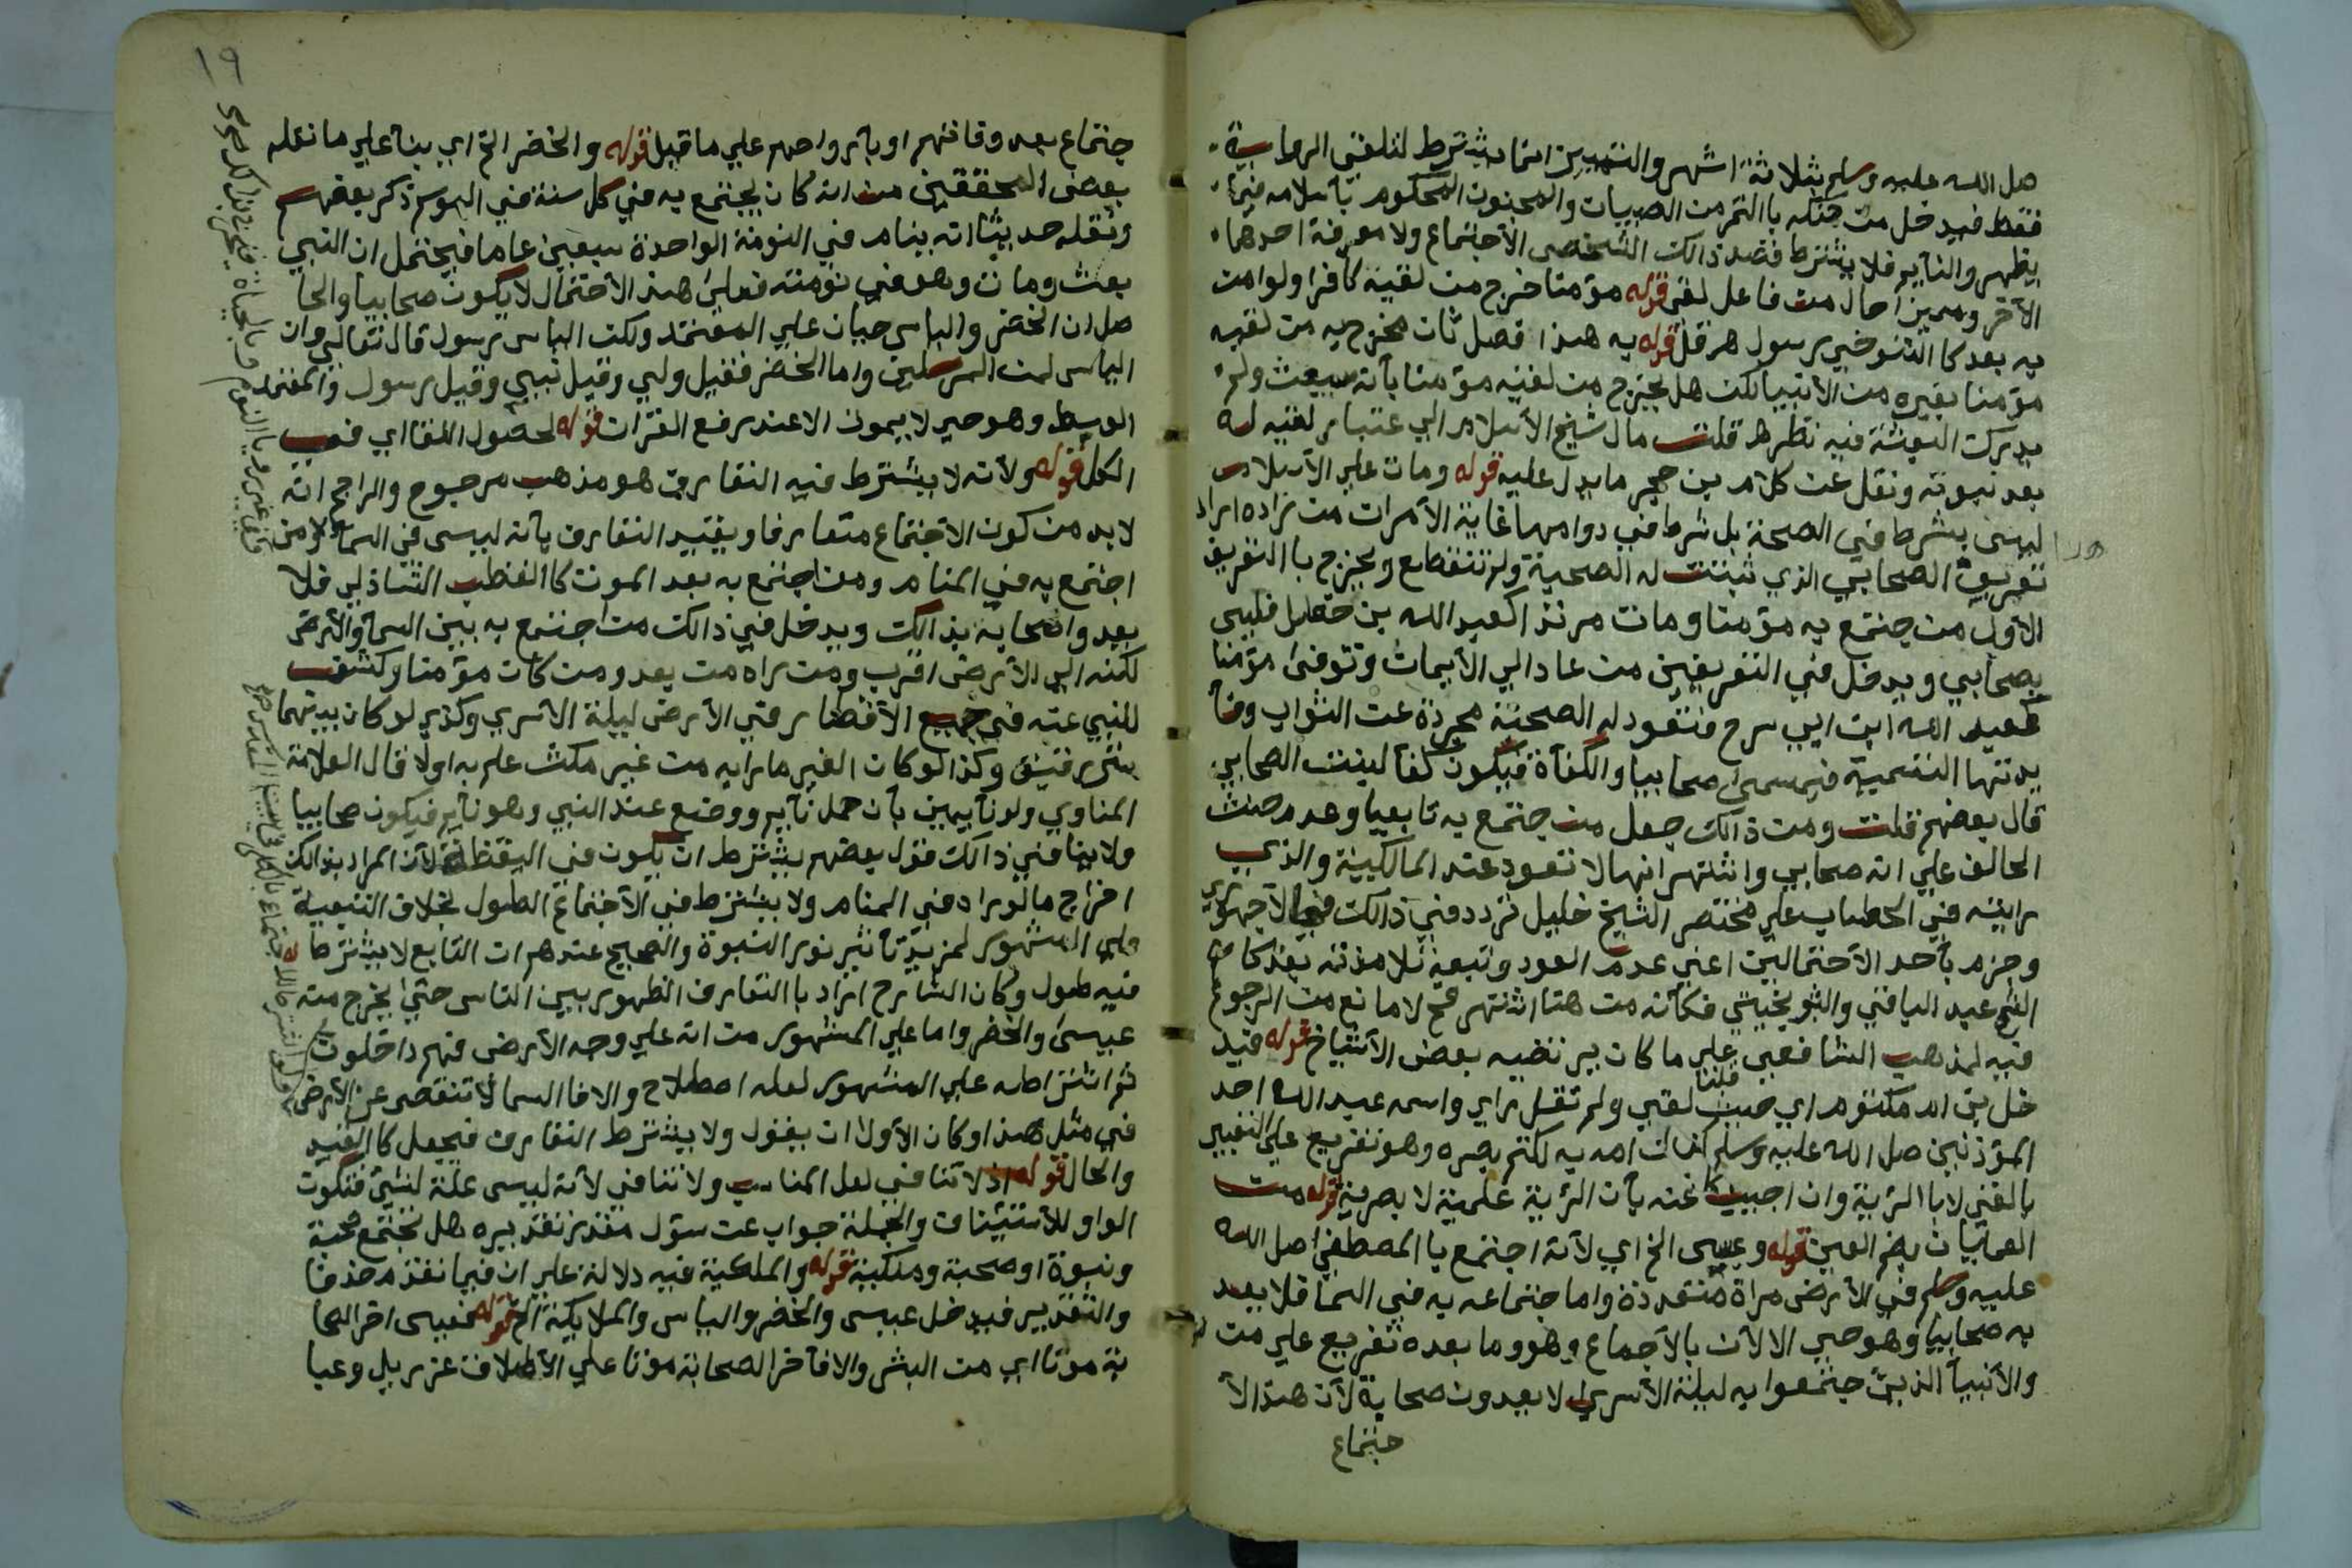 صل الله عليه وسلم بثلاثة اشهر والتمييز انما يشترط لتلقي الرواية
فقط فيدخل من حنكه باالتمر من الصبيان والمجنون المحكوم بأسلامه
يظهر والنايم فلا يشترط قصد ذالك الشخص الأجتماع ولا معرفة احدهما
الأخر ومميزا حال من فاعل لقي قوله مؤمنا خرج من لقيه كافرا ولو امن
به بعد كاالتنوخي رسول هرقل قوله به هذا فصل ثان مخرج به من لقيه
مؤمنا بغيره من الأنبيا لكن هل يخرج من لقيه مؤمنا بأنه سيبعث ولم
يدرك البعثة فيه نظر هـ قلت مال شيخ الأسلام الي عتبار لقيه له
بعد نبوته ونقل عن كلام بن حجر ما يدل عليه قوله ومات علي الأسلام
ليس بشرط في الصحة بل شرط في دوامها غاية الأمر ان من زاده اراد
تعريف الصحابي الذي ثبتت له الصحبة ولم تنقطع ويخرج باالتعريف
الأول من جتمع به مؤمنا ومات مرتدا كعبد الله بن خطل فليس
بصحابي ويدخل في التعريفين من عاد الي الأيمان وتوفي مؤمنا
كعبد الله ابن ابي سرح فتعود له الصحبة مجردة عن الثواب وفا
يدتها التسمية فيسمى صحابيا والكفأة فيكون كفأ لبنت الصحابي
قال بعضهم قلت ومن ذالك جعل من جتمع به تابعيا وعدم حنث
الحالف علي انه صحابي واشتهر انها لا تعود عند المالكية والذي
رايته في الحطاب علي مختصر الشيخ خليل تردد في ذالك الأجهوري
وجزم بأحد الأحتمالين اعني عدم العود وتبعه تلامذته بعد كا
الشيخ عبد الباقي والشبرخيتي فكأنه من هنا اشتهر نعم لا مانع من الرجوع
فيه لمذهب الشافعي علي ما كان يرتضيه بعض الأشياخ قوله فيد
خل بن ام مكتوم اي حيث قلنا لقي ولم تقل راي واسمه عبد الله احد
المؤذنين صل الله عليه وسلم كنات امه به لكتم بصره وهو تفريع علي التعبير
بالقي لا باالرؤية وان اجيب عنه بأن الرؤية علمية لا بصرية قوله من
العميان بضم العين قوله وعيسى الخ اي لأنه اجتمع باالمصطفي صل الله
عليه وسلم في الأرض مراة متعددة واما جتماعه به في السما فلا يعد
به صحابيا وهو حي الا الأن بالأجماع وهو وما بعده تفريع علي من
والأنبيأ الذين جتمعوا به ليلة الأسري لا يعدون صحابة لأن هذا الأ
جتماع
١٩
جتماع بعد وفاتهم او بأرواحهم علي ما قيل قوله والخضر الخ اي بنأ علي ما نقله
بعض المحققين من انه كان يجتمع به في كل سنة في الموسم ذكر بعضهم
ونقله حديثا انه ينام في النومة الواحدة سبعين عاما فيحتمل ان النبي
بعث ومات وهو في نومته فعلى هذا الأحتمال لا يكون صحابيا والحا
صل ان الخضر والياس حيان علي المعتمد ولكن الياس رسول قال تعالي وان
الياس لمن المرسلين واما الخضر فقيل ولي وقيل نبي وقيل رسول والمعتمد
الوسط وهو حي لا يموت الا عند رفع القران قوله لحصول اللقا اي في
الكل قوله ولأنه لا يشترط فيه التعارف هو مذهب مرجوح والراجح انه
لا بد من كون الأجتماع متعارفا ويقيد التعارف بأنه ليس في السما ولا من
اجتمع به في المنام ومن اجتمع به بعد الموت كاالقطب الشاذلي فلا
يعدوا صحابة بذالك ويدخل في ذالك من اجتمع به بين السما والأرض
لكنه الي الأرض اقرب ومن راه من بعد ومن كان مؤمنا وكشف
للنبي عنه في جميع الأقطار في الأرض ليلة الأسري وكذي لو كان بينهما
ستر رقيق وكذا لو كان الغير مارايه من غير مكث علم به اولا قال العلامة
المناوي ولو نايمين بأن حمل نأيم ووضع عند النبي وهو نأيم فيكون صحابيا
ولا ينافي ذالك قول بعضهم يشترط ان يكون في اليقظة لأن المراد بذالك
اخراج مالو راه في المنام ولا يشترط في الأجتماع الطول بخلاف التبعية
علي المشهور لمزيد تأثير نور النبوة والصحيح عندهم ان التابع لا يشترط
فيه طول وكان الشارح اراد باالتعارف الظهور بين الناس حتي يخرج منه
عيسى والخضر واما علي المشهور من انه علي وجه الأرض فهم داخلون
ثم اشتراطه علي المشهور لعله اصطلاح والا فاالسما لا تنقص عن الأرض
في مثل هذا وكان الأولا ان يقول ولا يشترط التعارف فيجعل كاالقيد
والحال قوله اذ لا تنافي لعل المناسب ولا تنافي لأنه ليس علة لشئ فتكون
الواو للأستئناف والجملة جواب عن سؤل مقدر تقديره هل تجتمع صحبة
ونبوة او صحبة وملكية قوله والملكية فيه دلالة علي ان فيما تقدم حذفا
والتقدير فيدخل عيسى والخضر والياس والملايكة الخ قوله فعيسى اخر الصحا
بة موتا اي من البشر والا فأخر الصحابة موتا علي الأطلاق عزريل وعيا